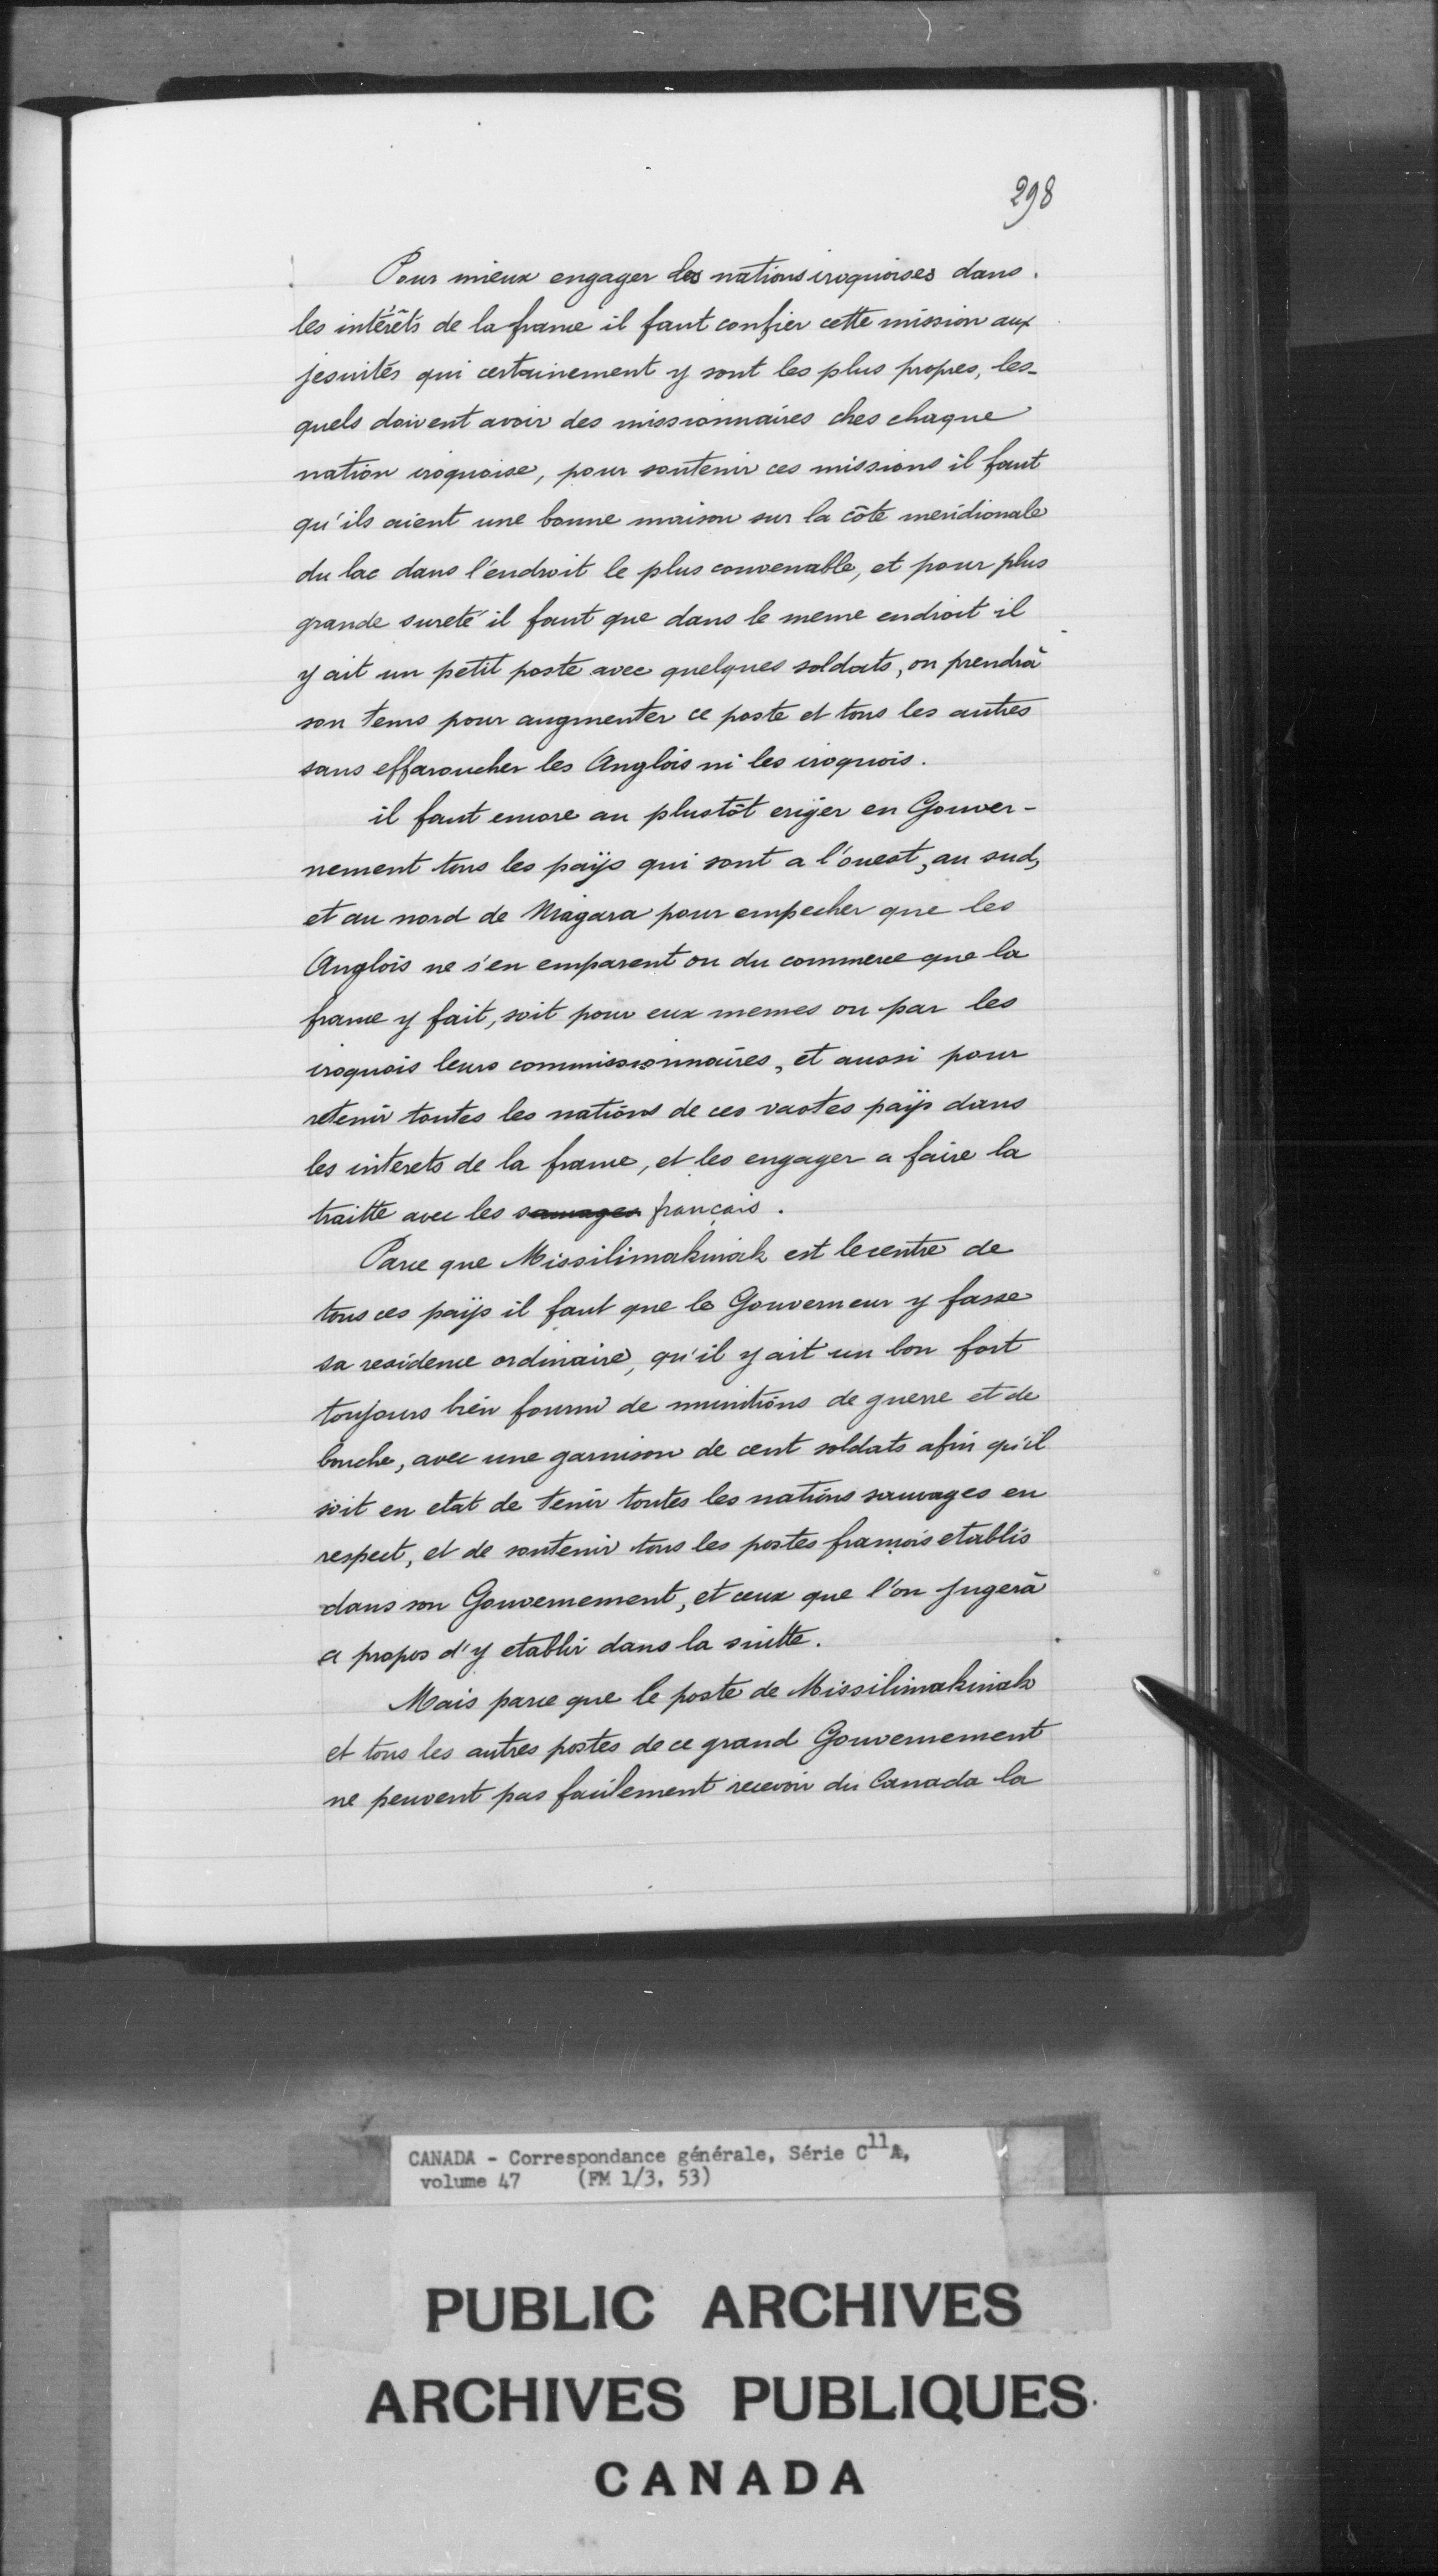 298
Pour mieux engager les nations iroquoises dans
les intérêts de la france il faut confier cette mission aux
jesuites qui certainement y sont les plus propres, les-
quels doivent avoir des missionnaires ches chaque
nation iroquoise, pour soutenir ces missions il faut
qu'ils aient une bonne maison sur la côte meridionale
du lac dans l'endroit le plus convenable, et pour plus
grande sureté il faut que dans le meme endroit il
y ait un petit poste avec quelques soldats, on prendrà
son tems pour augmenter ce poste et tous les autres
sans effaroucher les Anglois ni les iroquois.
il faut encore au plustôt eriger en Gouver-
nement tous les païs qui sont a l'ouest, au sud,
et au nord de Niagara pour empecher que les
Anglois ne s'en emparent ou du commerce que la
france y fait, soit pour eux memes ou par les
iroquois leurs commissionnaires, et aussi pour
retenir toutes les nations de ces vastes païs dans
les interets de la france, et les engager a faire la
traitte avec les sauvages français.
Parce que Missilimakinak est le centre de
tous ces païs il faut que le Gouverneur y fasse
sa residence ordinaire, qu'il y ait un bon fort
toujours bien fourni de munitions de guerre et de
bouche, avec une garnison de cent soldats afin qu'il
soit en etat de tenir toutes les nations sauvages en
respect, et de soutenir tous les postes françois etablis
dans son Gouvernement, et ceux que l'on jugerà
a propos d'y etablir dans la suitte.
Mais parce que le poste de Missilimakinak
et tous les autres postes de ce grand Gouvernement
ne peuvent pas facilement recevoir du Canada la
CANADA - Correspondance générale, Série C11A,
volume 47 (FM 1/3, 53)
PUBLIC ARCHIVES
ARCHIVES PUBLIQUES
CANADA